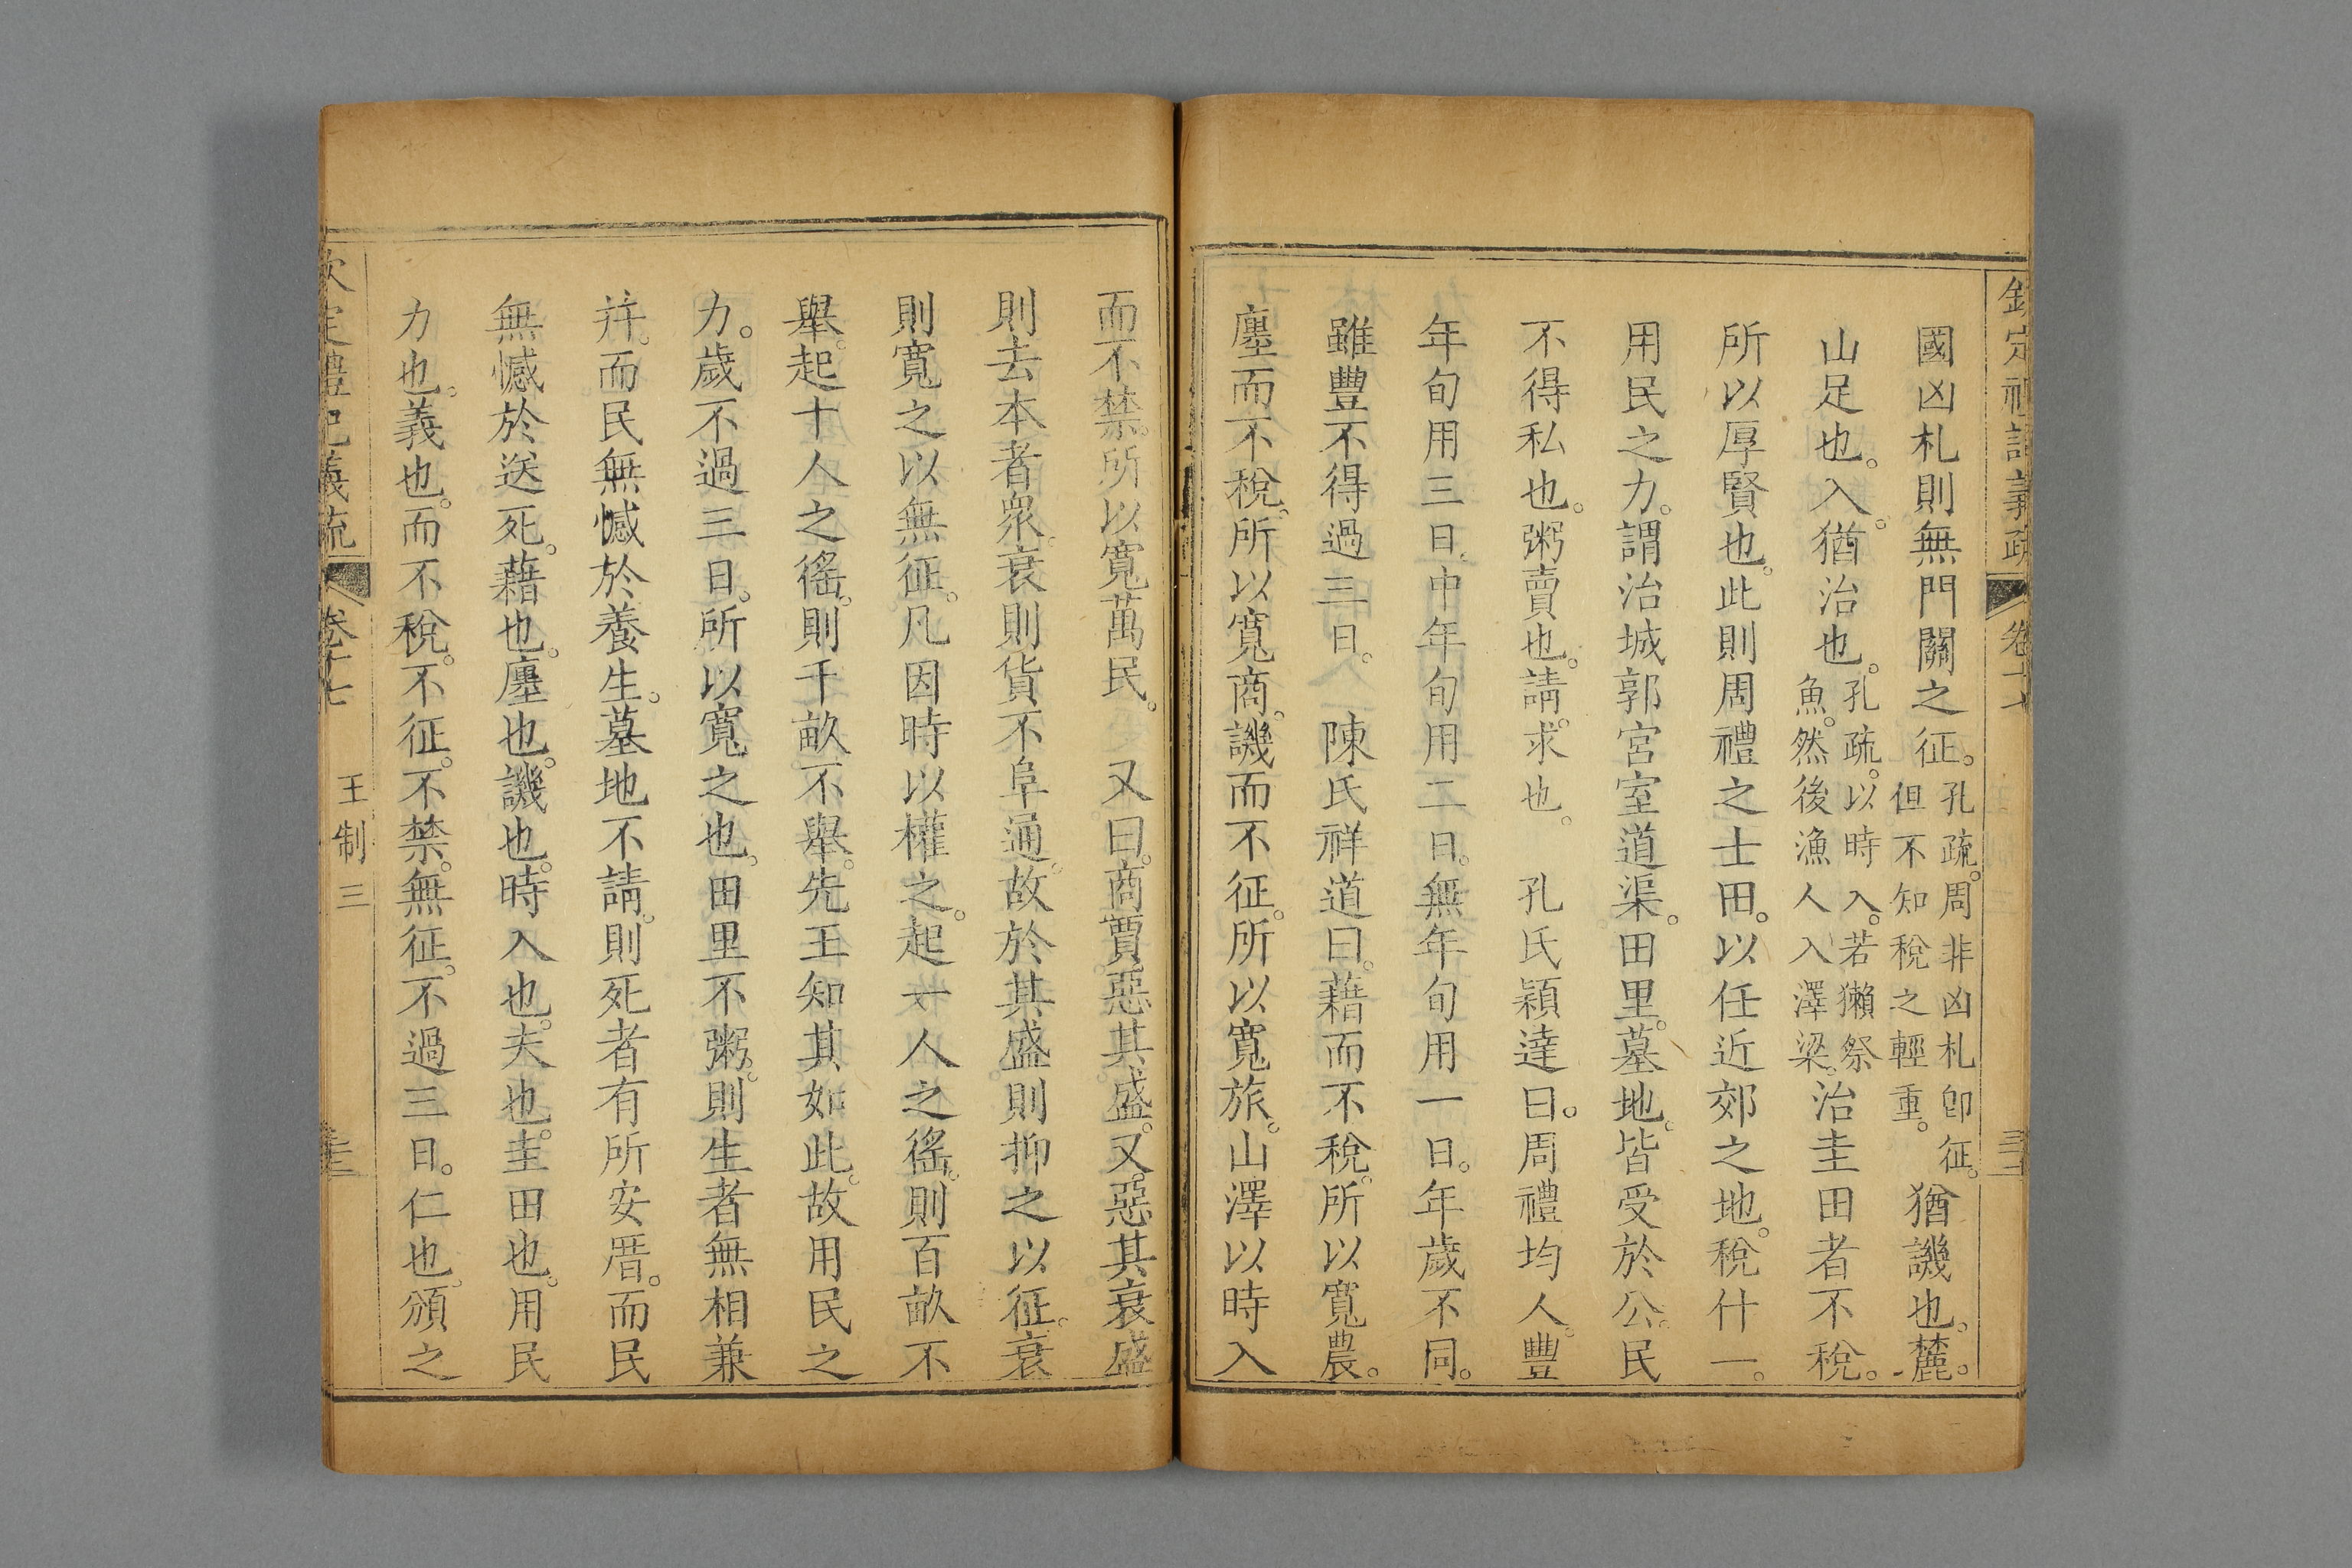 欽定禮記義疏 卷十七
國凶札則無門關之征。孔疏。周非凶札卽征。但不知稅之輕重。猶譏也。麓。
山足也。入。猶治也。孔疏。以時入。若獺祭魚。然後漁人入澤梁。治圭田者不稅。
所以厚賢也。此則周禮之士田。以任近郊之地。稅什一。
用民之力。謂治城郭宮室道渠。田里。墓地。皆受於公。民
不得私也。粥。賣也。請。求也。 孔氏穎達曰。周禮均人。豐
年旬用三日。中年旬用二日。無年旬用一日。年歲不同。
雖豐不得過三日。 陳氏祥道曰。藉而不稅。所以寬農。
廛而不稅。所以寬商。譏而不征。所以寬旅。山澤以時入
而不禁。所以寬萬民。 又曰。商賈惡其盛。又惡其衰。盛
則去本者衆。衰則貨不阜通。故於其盛則抑之以征。衰
則寬之以無征。凡因時以權之。起一人之徭。則百畝不
舉。起十人之徭。則千畝不舉。先王知其如此。故用民之
力。歲不過三日。所以寬之也。田里不粥。則生者無相兼
幷。而民無憾於養生。墓地不請。則死者有所安厝。而民
無憾於送死。藉也。廛也。譏也。時入也。夫也。圭田也。用民
力也。義也。而不稅。不征。不禁。無征。不過三日。仁也。頒之
欽定禮記義疏 卷十七 王制三